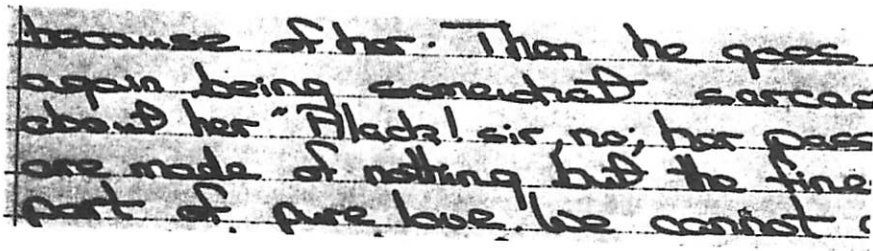 because of her. Then he goes
again being somewhat sarcas
about her "Alack! sir, no; her pass
are made of nothing but the fine
part of pure love. We cannot c